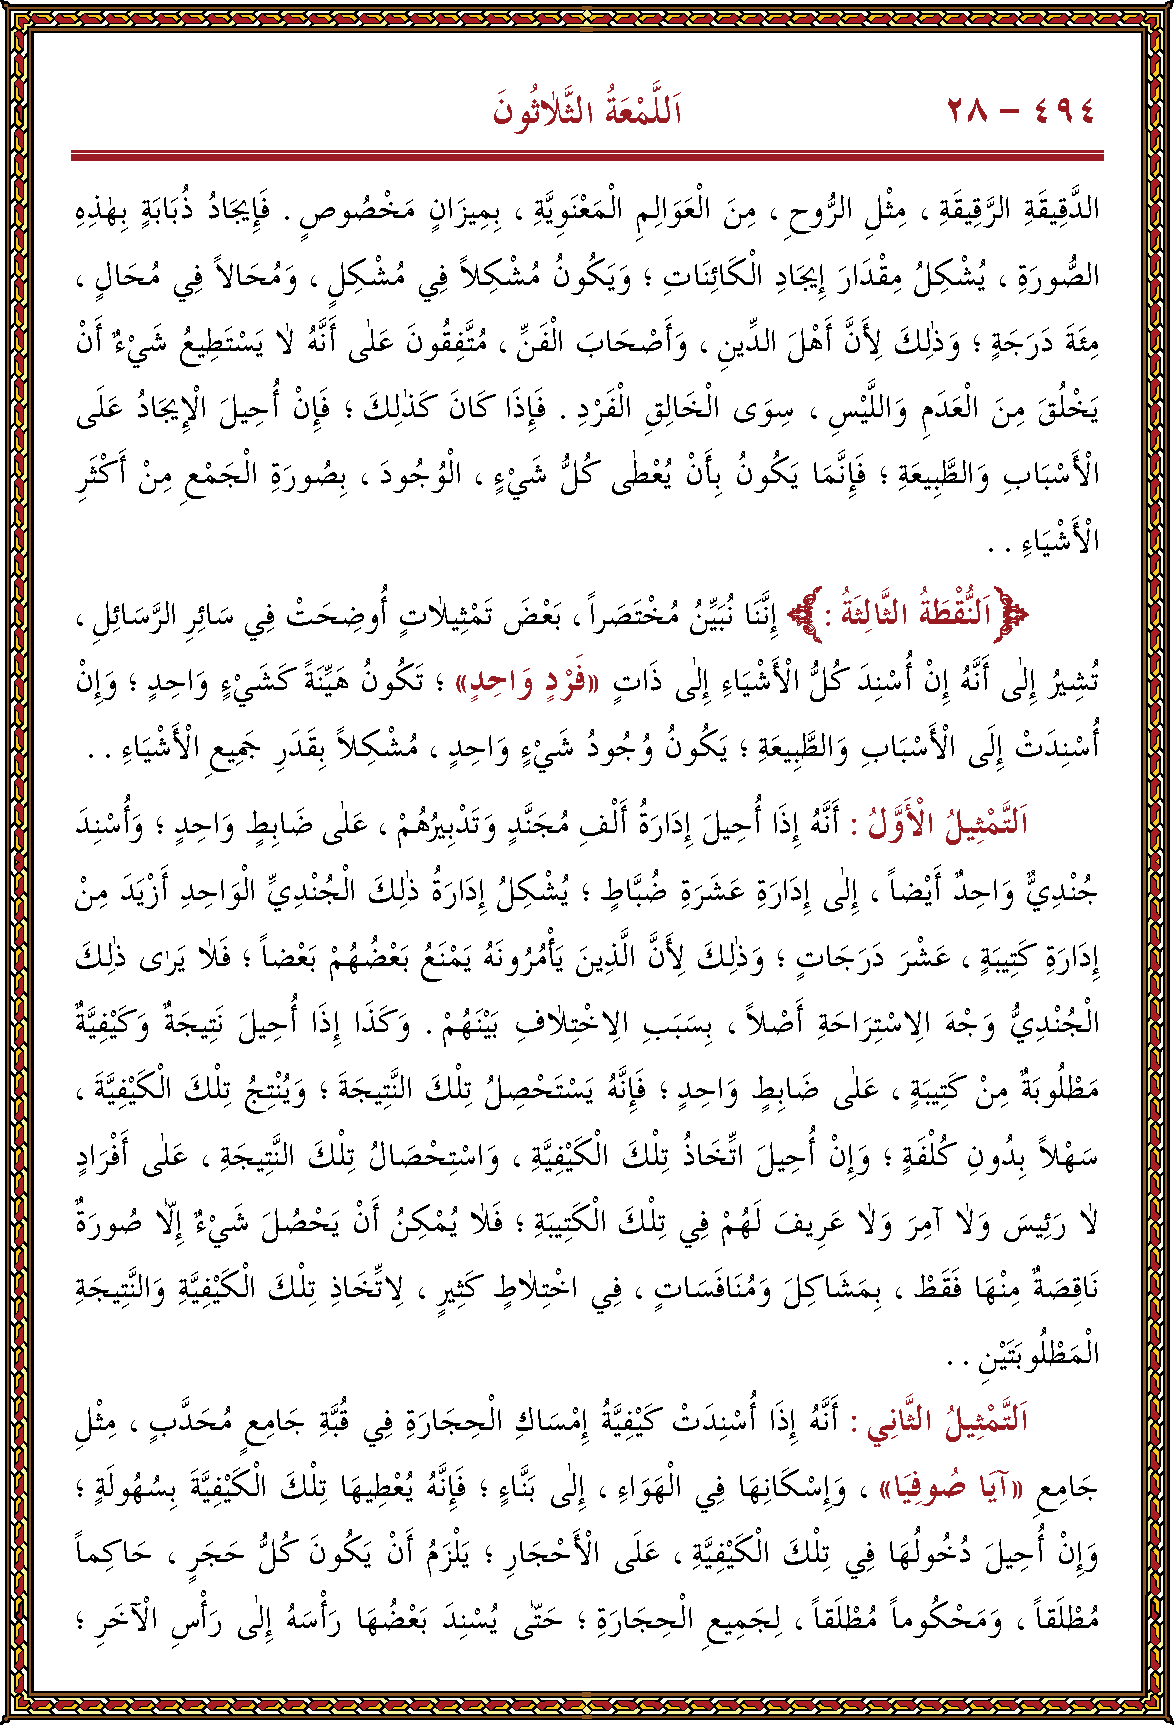 ٤٩٤ – ٢٨ اَللَّمْعَةُ الثَّلَاثُونَ
الدَّقِيقَةِ الرَّقِيقَةِ ، مِثْلِ الرُّوحِ ، مِنَ الْعَوَالِمِ الْمَعْنَوِيَّةِ ، بِمِيزَانٍ مَخْصُوصٍ . فَإِيجَادُ ذُبَابَةٍ بِهٰذِهِ
الصُّورَةِ ، يُشْكِلُ مِقْدَارَ إِيجَادِ الْكَائِنَاتِ ؛ وَيَكُونُ مُشْكِلاً فِي مُشْكِلٍ ، وَمُحَالاً فِي مُحَالٍ ،
مِئَةَ دَرَجَةٍ ؛ وَذٰلِكَ لِأَنَّ أَهْلَ الدِّينِ ، وَأَصْحَابَ الْفَنِّ ، مُتَّفِقُونَ عَلٰى أَنَّهُ لَا يَسْتَطِيعُ شَيْءٌ أَنْ
يَخْلُقَ مِنَ الْعَدَمِ وَاللَّيْسِ ، سِوَى الْخَالِقِ الْفَرْدِ . فَإِذَا كَانَ كَذٰلِكَ ؛ فَإِنْ أُحِيلَ الْإِيجَادُ عَلَى
الْأَسْبَابِ وَالطَّبِيعَةِ ؛ فَإِنَّمَا يَكُونُ بِأَنْ يُعْطٰى كُلُّ شَيْءٍ ، الْوُجُودَ ، بِصُورَةِ الْجَمْعِ مِنْ أَكْثَرِ
الْأَشْيَاءِ . .
اَلنُّقْطَةُ الثَّالِثَةُ : إِنَّنَا نُبَيِّنُ مُخْتَصَراً ، بَعْضَ تَمْثِيلَاتٍ أُوضِحَتْ فِي سَائِرِ الرَّسَائِلِ ،
تُشِيرُ إِلٰى أَنَّهُ إِنْ أُسْنِدَ كُلُّ الْأَشْيَاءِ إِلٰى ذَاتٍ «فَرْدٍ وَاحِدٍ» ؛ تَكُونُ هَيِّنَةً كَشَيْءٍ وَاحِدٍ ؛ وَإِنْ
أُسْنِدَتْ إِلَى الْأَسْبَابِ وَالطَّبِيعَةِ ؛ يَكُونُ وُجُودُ شَيْءٍ وَاحِدٍ ، مُشْكِلاً بِقَدَرِ جَمِيعِ الْأَشْيَاءِ . .
اَلتَّمْثِيلُ الْأَوَّلُ : أَنَّهُ إِذَا أُحِيلَ إِدَارَةُ أَلْفِ مُجَنَّدٍ وَتَدْبِيرُهُمْ ، عَلٰى ضَابِطٍ وَاحِدٍ ؛ وَأُسْنِدَ
جُنْدِيٌّ وَاحِدٌ أَيْضاً ، إِلٰى إِدَارَةِ عَشَرَةِ ضُبَّاطٍ ؛ يُشْكِلُ إِدَارَةُ ذٰلِكَ الْجُنْدِيِّ الْوَاحِدِ أَزْيَدَ مِنْ
إِدَارَةِ كَتِيبَةٍ ، عَشْرَ دَرَجَاتٍ ؛ وَذٰلِكَ لِأَنَّ الَّذِينَ يَأْمُرُونَهُ يَمْنَعُ بَعْضُهُمْ بَعْضاً ؛ فَلَا يَرٰى ذٰلِكَ
الْجُنْدِيُّ وَجْهَ الِاسْتِرَاحَةِ أَصْلاً ، بِسَبَبِ الِاخْتِلَافِ بَيْنَهُمْ . وَكَذَا إِذَا أُحِيلَ نَتِيجَةٌ وَكَيْفِيَّةٌ
مَطْلُوبَةٌ مِنْ كَتِيبَةٍ ، عَلٰى ضَابِطٍ وَاحِدٍ ؛ فَإِنَّهُ يَسْتَحْصِلُ تِلْكَ النَّتِيجَةَ ؛ وَيُنْتِجُ تِلْكَ الْكَيْفِيَّةَ ،
سَهْلاً بِدُونِ كُلْفَةٍ ؛ وَإِنْ أُحِيلَ اتِّخَاذُ تِلْكَ الْكَيْفِيَّةِ ، وَاسْتِحْصَالُ تِلْكَ النَّتِيجَةِ ، عَلٰى أَفْرَادٍ
لَا رَئِيسَ وَلَا آمِرَ وَلَا عَرِيفَ لَهُمْ فِي تِلْكَ الْكَتِيبَةِ ؛ فَلَا يُمْكِنُ أَنْ يَحْصُلَ شَيْءٌ إِلَّا صُورَةٌ
نَاقِصَةٌ مِنْهَا فَقَطْ ، بِمَشَاكِلَ وَمُنَافَسَاتٍ ، فِي اخْتِلَاطٍ كَثِيرٍ ، لِاتِّخَاذِ تِلْكَ الْكَيْفِيَّةِ وَالنَّتِيجَةِ
الْمَطْلُوبَتَيْنِ . .
اَلتَّمْثِيلُ الثَّانِي : أَنَّهُ إِذَا أُسْنِدَتْ كَيْفِيَّةُ إِمْسَاكِ الْحِجَارَةِ فِي قُبَّةِ جَامِعٍ مُحَدَّبٍ ، مِثْلِ
جَامِعِ «آيَا صُوفِيَا» ، وَإِسْكَانِهَا فِي الْهَوَاءِ ، إِلٰى بَنَّاءٍ ؛ فَإِنَّهُ يُعْطِيهَا تِلْكَ الْكَيْفِيَّةَ بِسُهُولَةٍ ؛
وَإِنْ أُحِيلَ دُخُولُهَا فِي تِلْكَ الْكَيْفِيَّةِ ، عَلَى الْأَحْجَارِ ؛ يَلْزَمُ أَنْ يَكُونَ كُلُّ حَجَرٍ ، حَاكِماً
مُطْلَقاً ، وَمَحْكُوماً مُطْلَقاً ، لِجَمِيعِ الْحِجَارَةِ ؛ حَتّٰى يُسْنِدَ بَعْضُهَا رَأْسَهُ إِلٰى رَأْسِ الْآخَرِ ؛